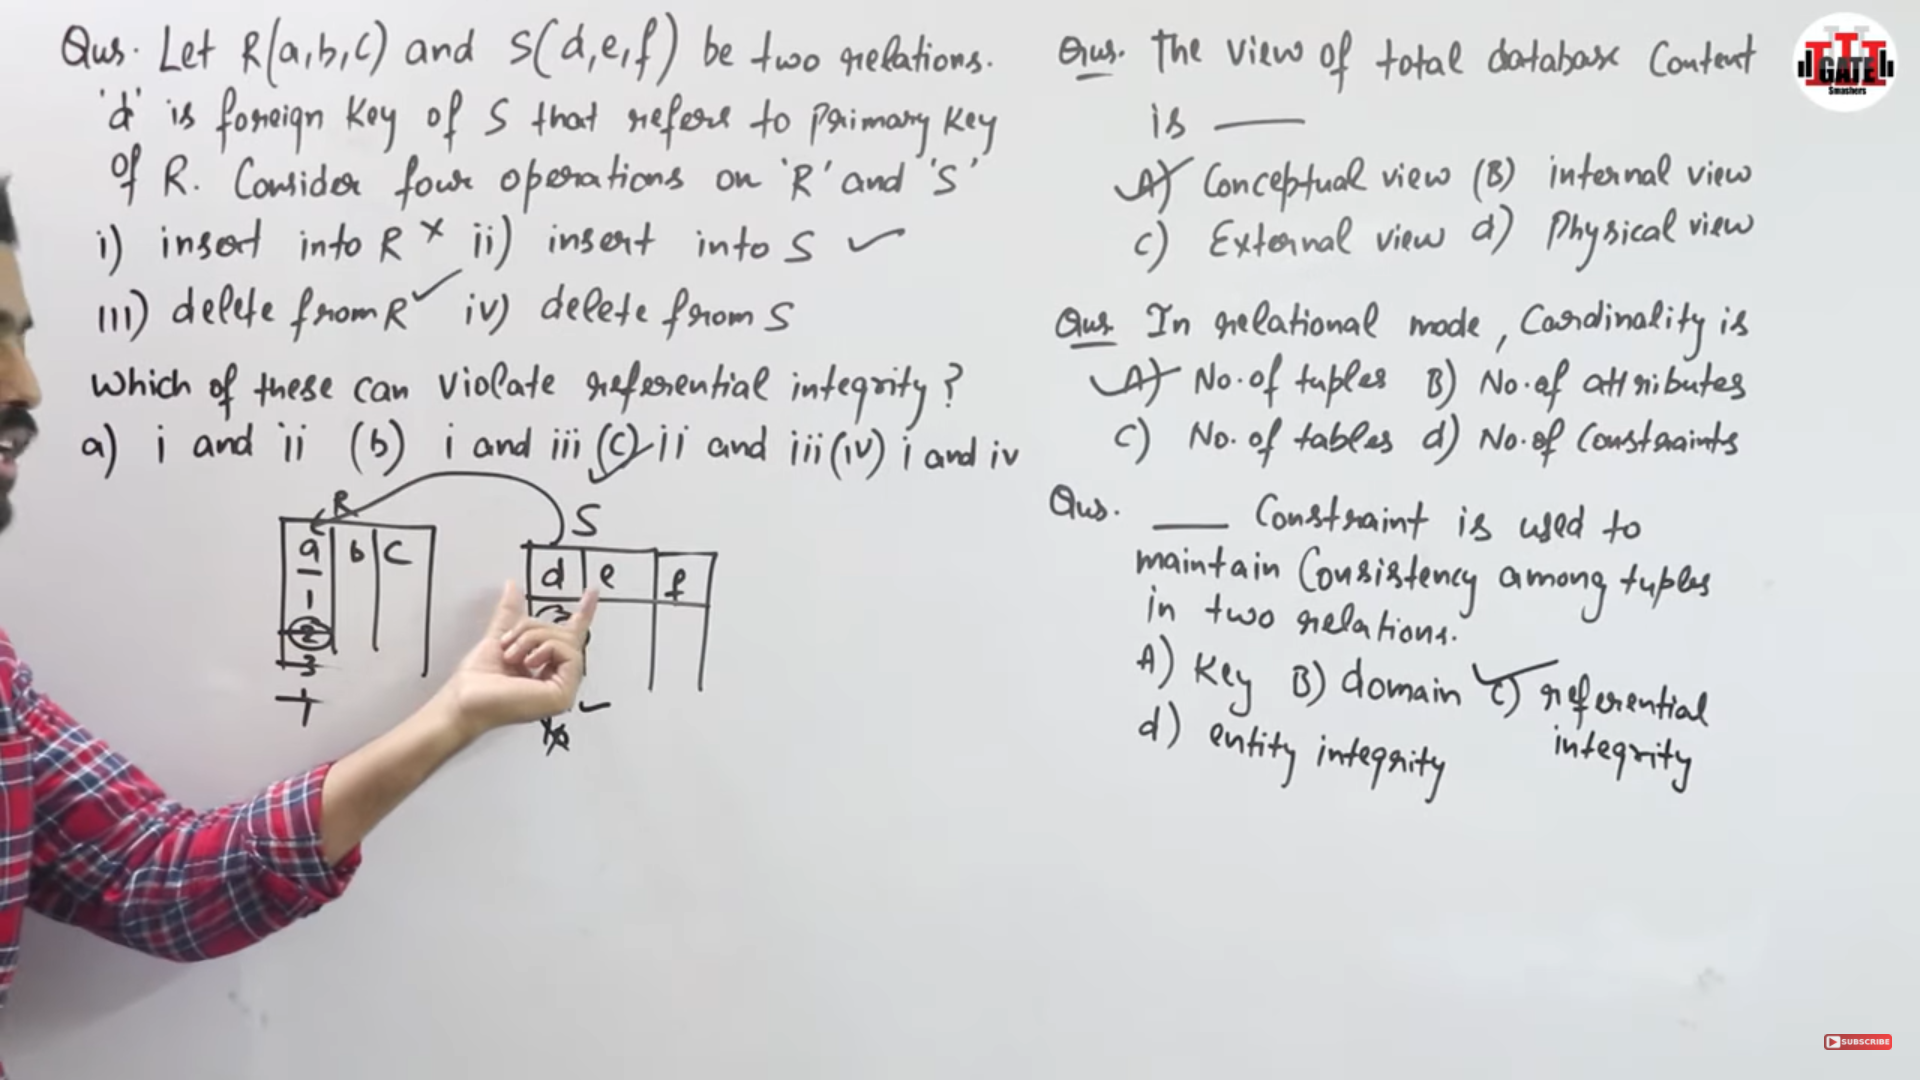 Qus. Let R(a,b,c) and S(d,e,f) be two relations.
'd' is foreign key of S that refers to Primary key
of R. Consider four operations on 'R' and 'S'
i) insert into R × ii) insert into S ✓
iii) delete from R ✓ iv) delete from S
Which of these can violate referential integrity?
a) i and ii (b) i and iii (c) ii and iii (iv) i and iv
R
S
a b c
d e f
1
2
3
Qus. The view of total database Content
is ——
A) Conceptual view (B) internal view
c) External view d) Physical view
Qus In relational mode, Cardinality is
A) No. of tuples B) No. of attributes
c) No. of tables d) No. of Constraints
Qus. —— Constraint is used to
maintain Consistency among tuples
in two relations.
A) Key B) domain c) referential
integrity
d) entity integrity
GATE
Smashers
SUBSCRIBE